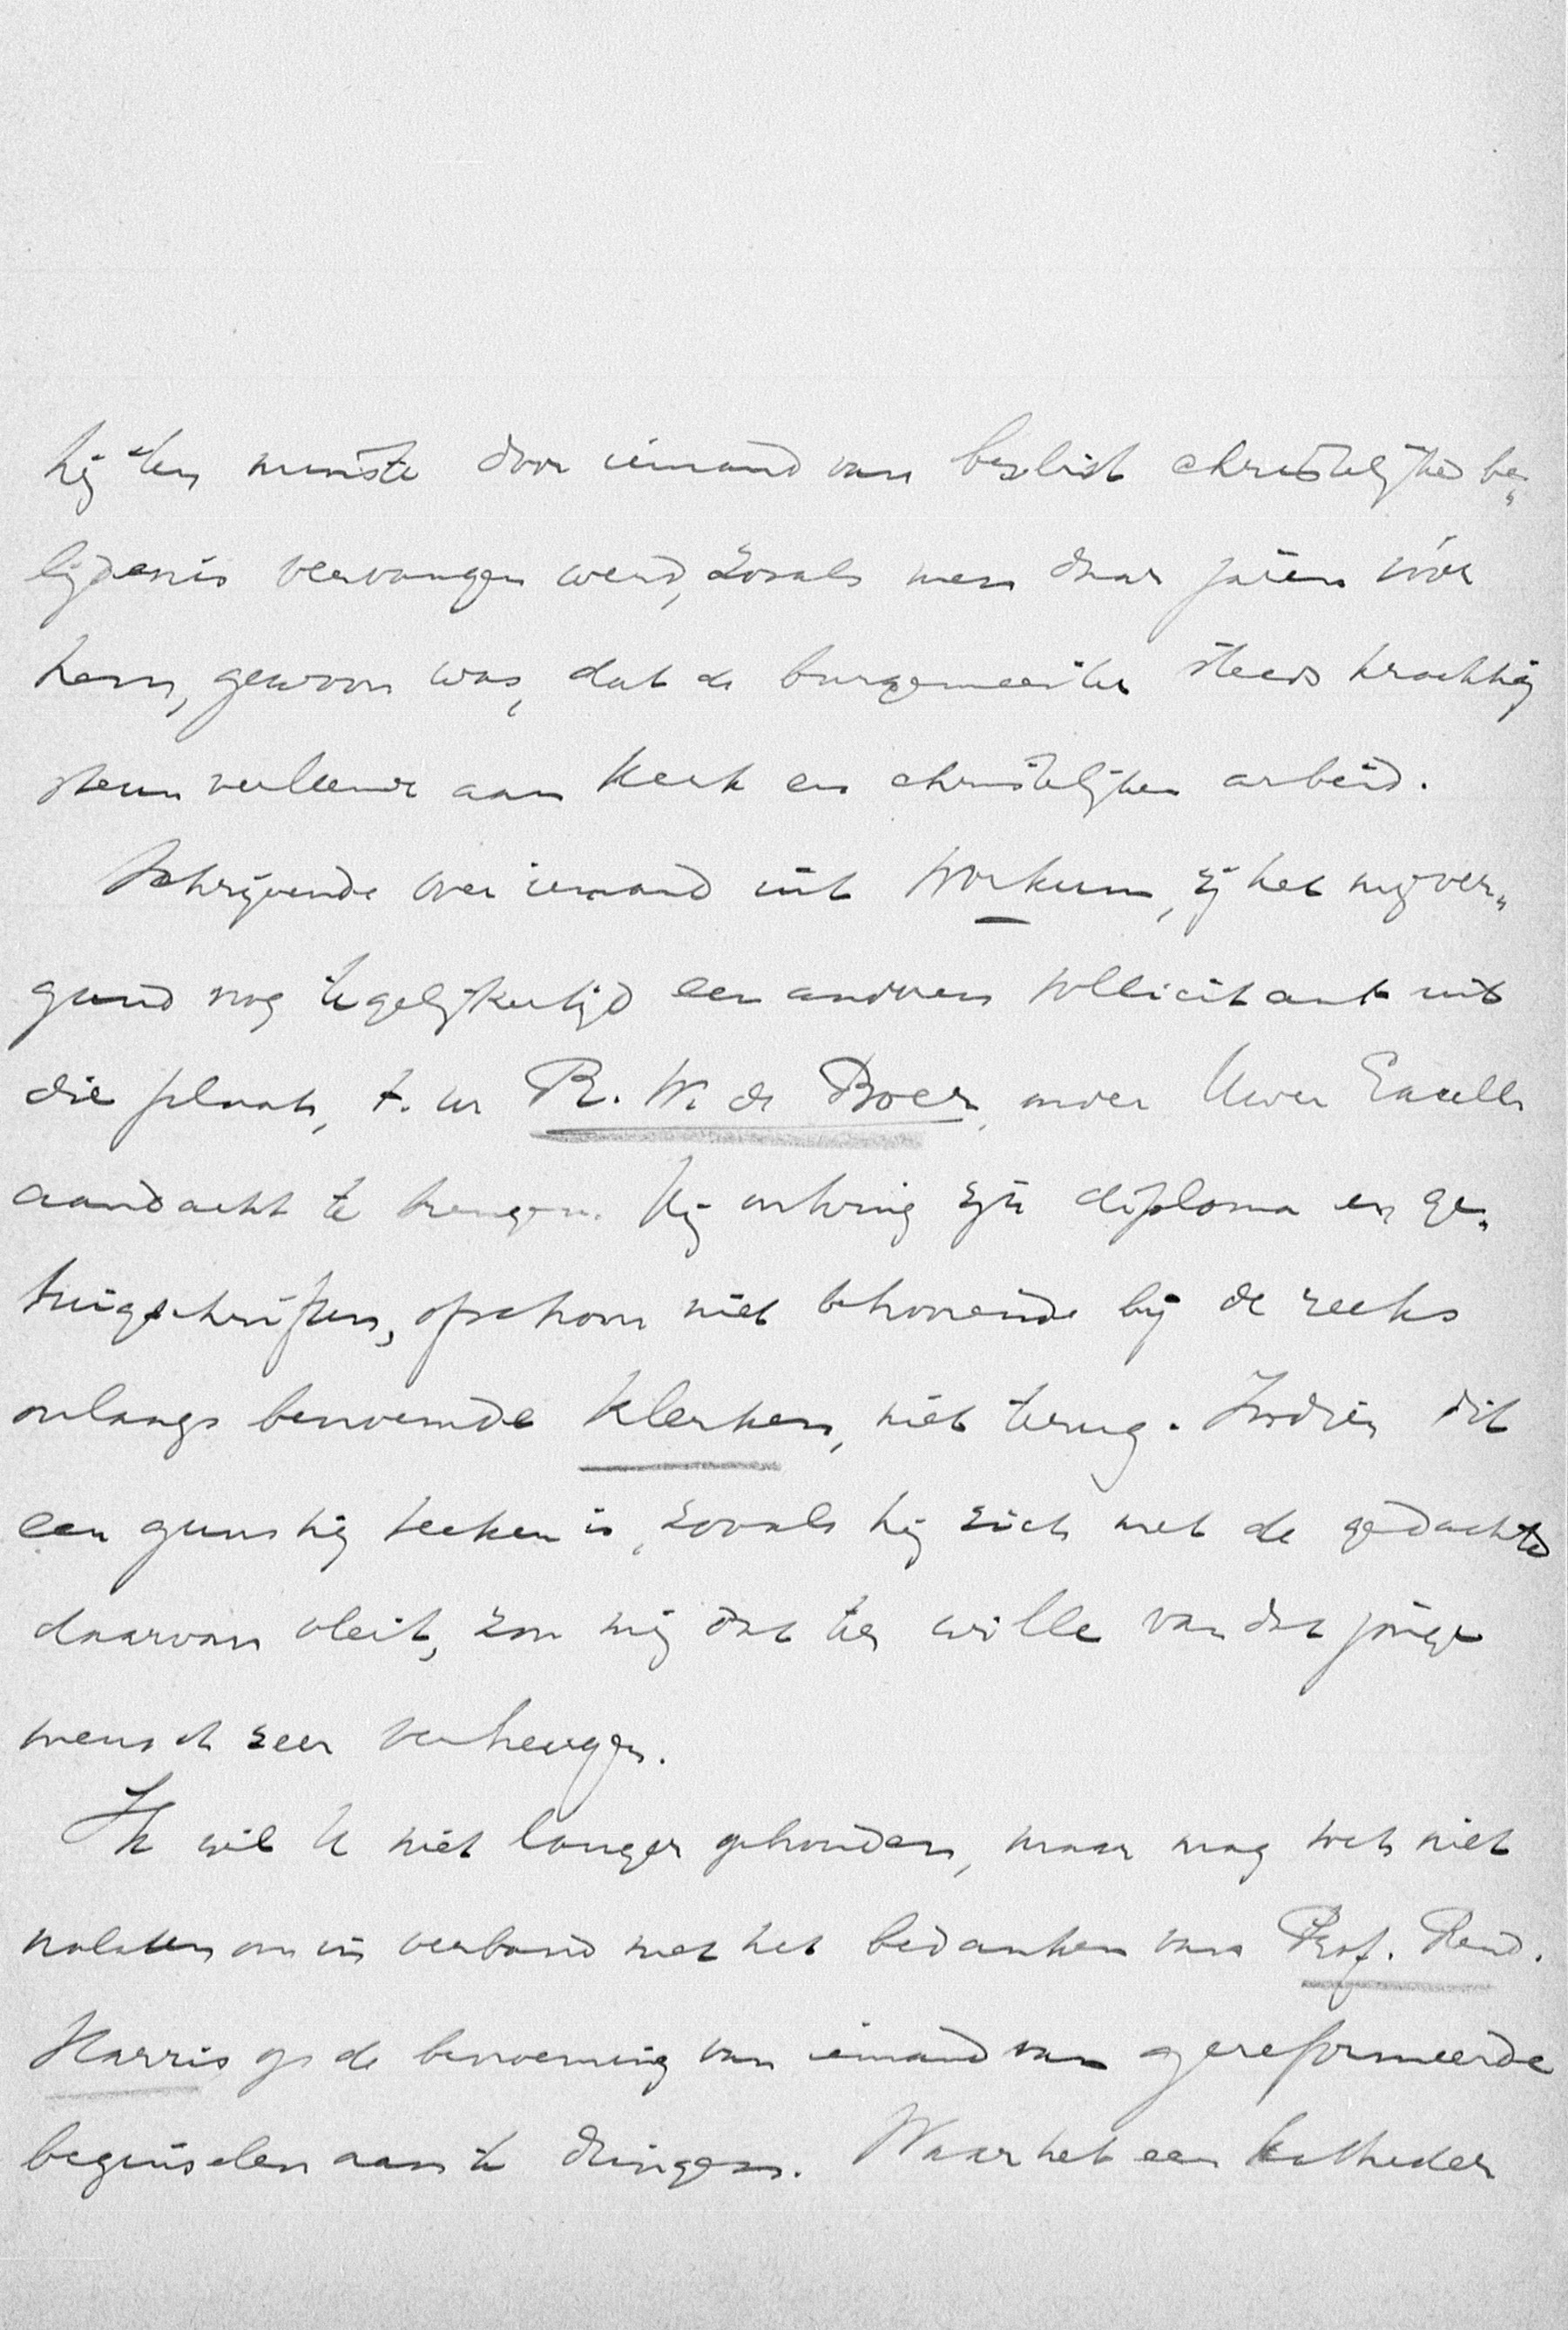 hij ten minste door iemand van beslist christelijke be„
lijdenis vervangen werd, zooals men daar jaren vóór
hem, gewoon was, dat de burgemeester steeds krachtig
steun verleende aan Kerk en christelijken arbeid.
Schrijvende over iemand uit Workum, zij het mij ver„
gund nog tegelijkertijd een anderen sollicitant uit
die plaats, t. w. R. W. de Boer, onder Uwer Excell.
aandacht te brengen. Hij ontving zijn diploma en ge„
tuigschriften, ofschoon niet behoorende bij de reeks
onlangs benoemde klerken, niet terug. Indien dit
een gunstig teeken is, zooals hij zich met de gedachte
daarvan vleit, zou mij dat ter wille van dat jonge
mensch zeer verheugen.
Ik wil U niet langer ophouden, maar mag toch niet
nalaten om in verband met het bedanken van Prof. Rend.
Harris op de benoeming van iemand van gereformeerde
beginselen aan te dringen. Waar het een katheder